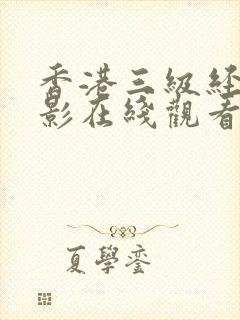 香港三級經
影在綫觀看
夏學鑾